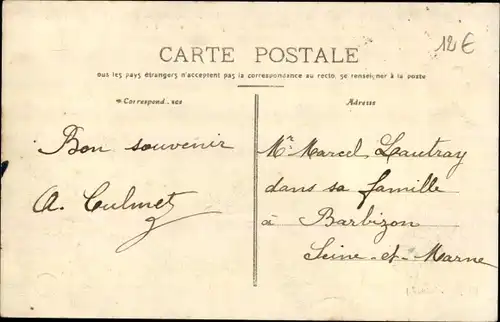 12€
CARTE POSTALE
ous les pays étrangers n'acceptent pas la correspondance au recto, se renseigner à la poste
Correspond..ces
Adresse
Bon souvenir
A. Culmet
Mr Marcel Lautray
dans sa famille
à Barbizon
Seine-et-Marne